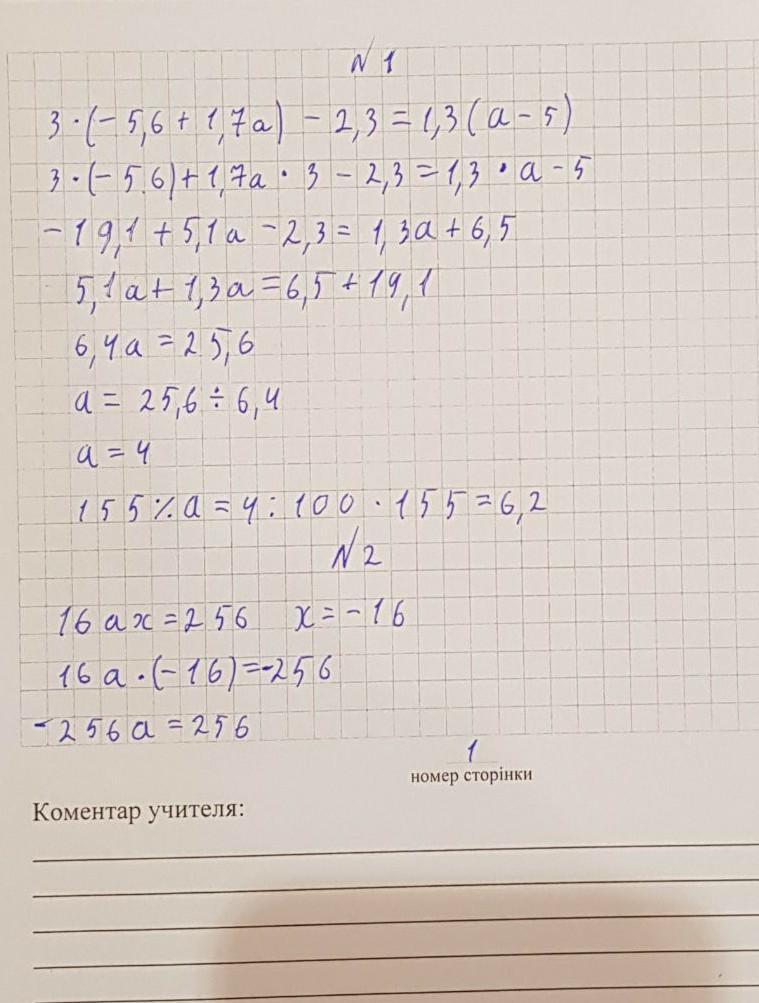 N 1
3 · (- 5,6 + 1,7a) - 2,3 = 1,3 (a - 5)
3 · (- 5,6) + 1,7a · 3 - 2,3 = 1,3 · a - 5
- 19,1 + 5,1a - 2,3 = 1,3a + 6,5
5,1a + 1,3a = 6,5 + 19,1
6,4a = 25,6
a = 25,6 ÷ 6,4
a = 4
155%a = 4 : 100 · 155 = 6,2
N 2
16 ax = 256 x = - 16
16 a · (- 16) = -256
- 256a = 256
1
номер сторінки
Коментар учителя: